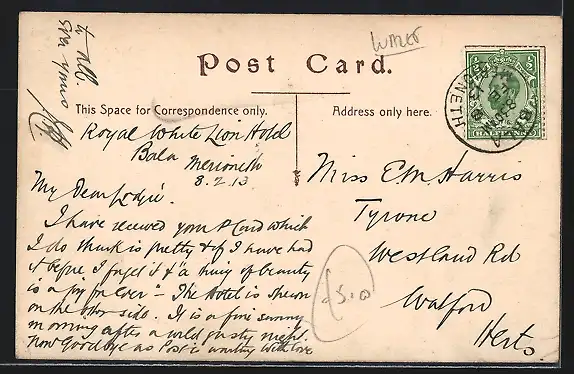 Wales
Post Card.
This Space for Correspondence only.
Address only here.
Royal White Lion Hotel
Bala Merioneth
8.2.13
My Dear
I have received your P Card which
I do think is pretty & if I have had
it before I forget it & "a thing of beauty
is a joy for ever" - The Hotel is shewn
on the other side. It is a fine sunny
morning after a wild gusty night.
Now Goodbye as Post is waiting with love
to all.
Ever yours
Miss E.M. Harris
Tyrone
Westland Rd
Watford
Herts
BALA
HALFPENNY